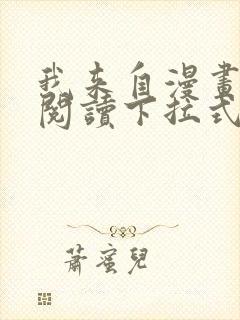 我来自漫畫
閱讀下拉式
蕭蜜兒